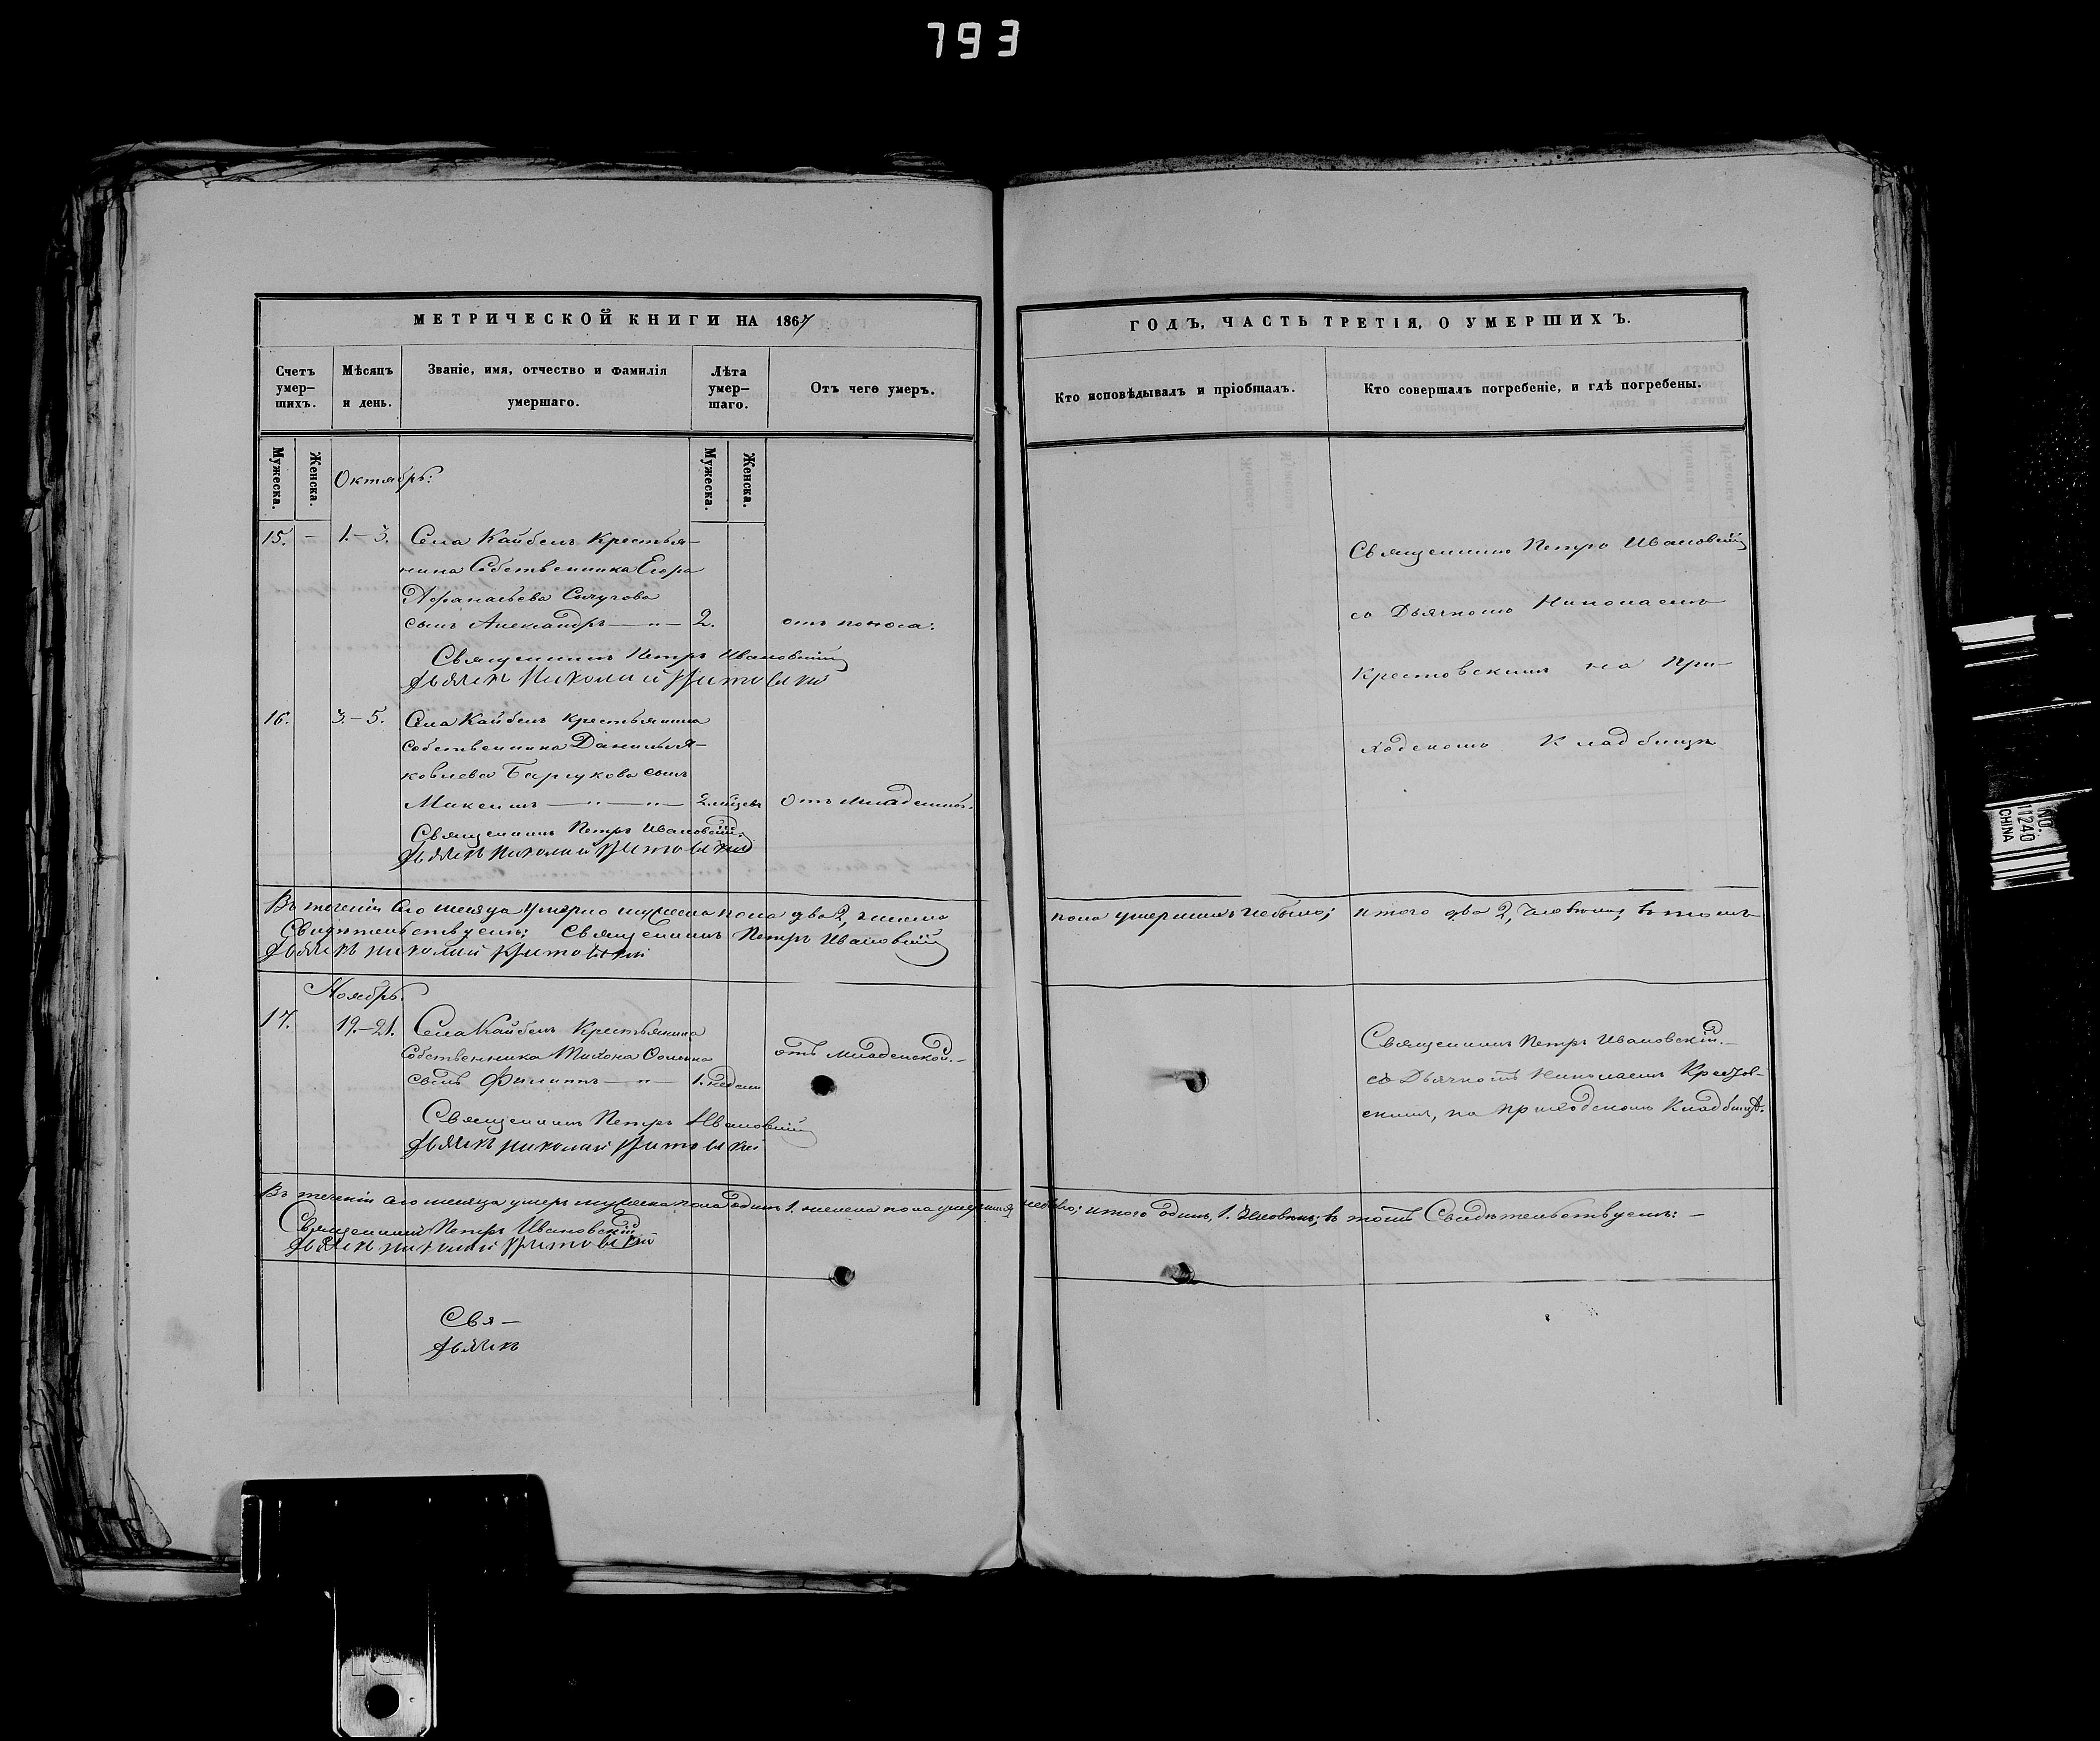 793
МЕТРИЧЕСКОЙ КНИГИ НА 1867
Счетъ умер-шихъ.
Мѣсяцъ и день.
Званіе, имя, отчество и фамилія умершаго.
Лѣта умер-шаго.
Отъ чего умеръ.
Мужеска.
Женска.
Мужеска.
Женска.
Октябрь:
15. – 1.–3. Села Кайбелъ Крестья-
нина Собственника Егора
Афанасьева
сынъ Александръ — " — 2. отъ поноса:
Священникъ Петръ Ивановскій
Дьячекъ Николай
16. 3.–5. Села Кайбелъ крестьянина
собственника Данилы Я-
ковлева Барсукова сынъ
Максимъ — " — " — 2 мѣсяцъ Отъ младенской.
Священникъ Петръ Ивановскій
Дьячекъ Николай
Въ теченіи сего месяца умерло мужеска пола два 2, женска
Свидѣтельствуемъ: Священникъ Петръ Ивановскій
Дьячекъ Николай
Ноябрь.
17. 19.–21. Села Кайбелъ Крестьянина
Собственника Тихона
сынъ Филиппъ — " — 1. недели отъ младенской.–
Священникъ Петръ Ивановскій
Дьячекъ Николай
Въ теченіи сего месяца умеръ мужеска пола одинъ 1. женска пола умершихъ небыло; итого одинъ, 1. человѣкъ; въ томъ Свидѣтельствуемъ: –
Священникъ Петръ Ивановскій
Дьячекъ Николай
Свя–
Дьячекъ
ГОДЪ, ЧАСТЬ ТРЕТІЯ, О УМЕРШИХЪ.
Кто исповѣдывалъ и пріобщалъ.
Кто совершалъ погребеніе, и гдѣ погребены.
Священникъ Петръ Ивановскій
со Дьячкомъ Николаемъ
Крестовскимъ на при-
ходскомъ Кладбищѣ
пола умершихъ небыло; итого два 2, человѣка, въ томъ
Священникъ Петръ Ивановскій.–
съ Дьячкомъ Николаемъ Крестов-
скимъ, на приходскомъ Кладбищѣ.
NO.
11240
CHINA